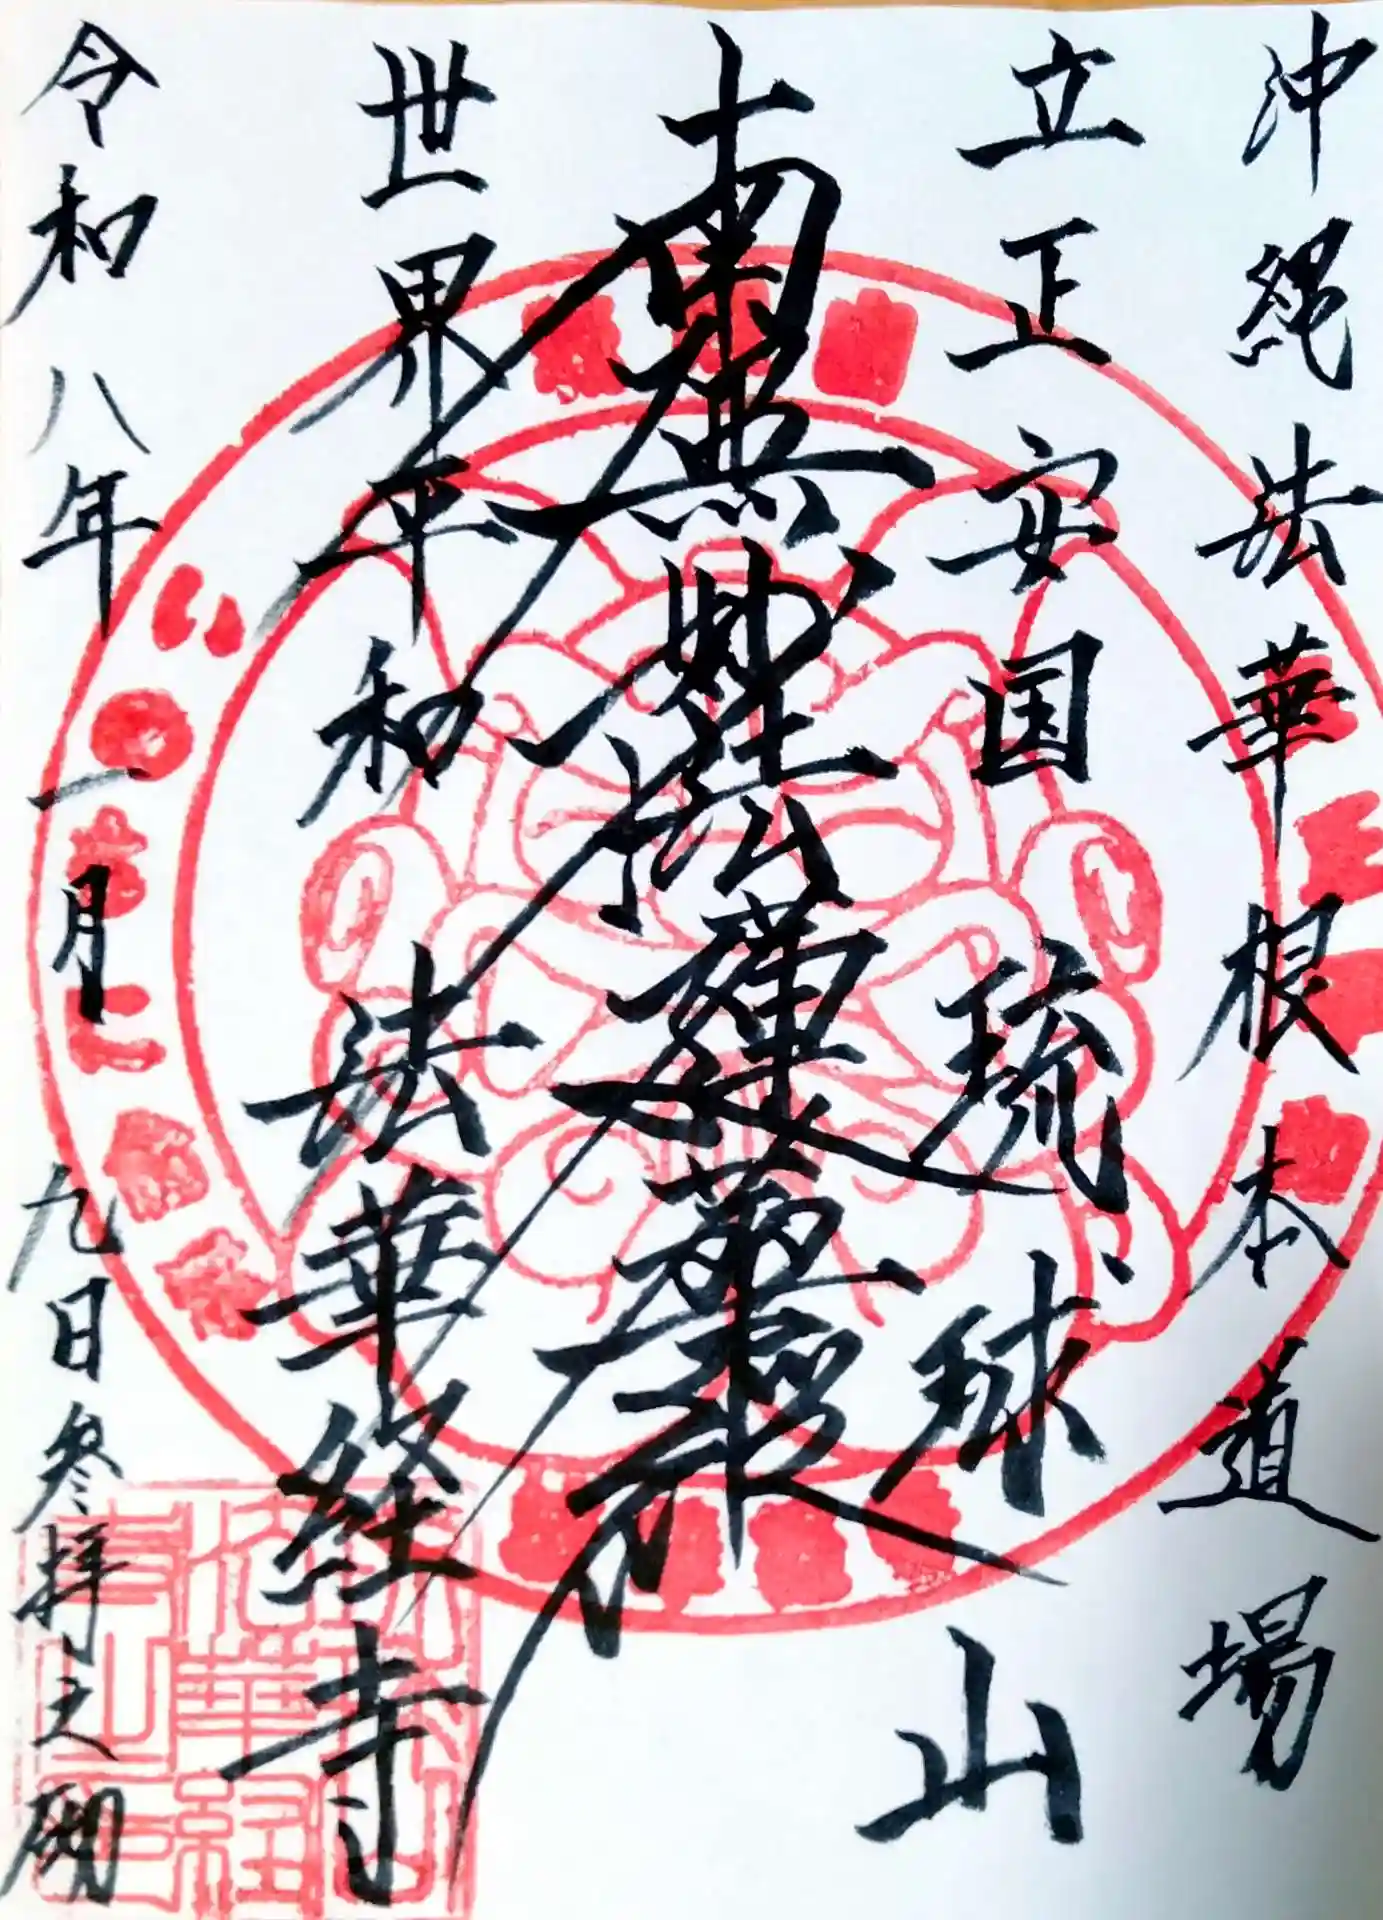 沖縄法華根本道場
立正安国 琉球山
南無妙法蓮華経
世界平和 法華経寺
令和八年一月九日参拝之砌